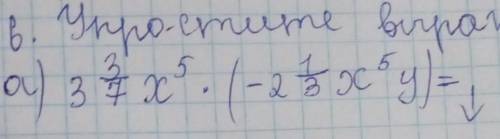 в. Упро-стите выраж
а) 3 3/7 x⁵ · (-2 1/3 x⁵y) = ↓